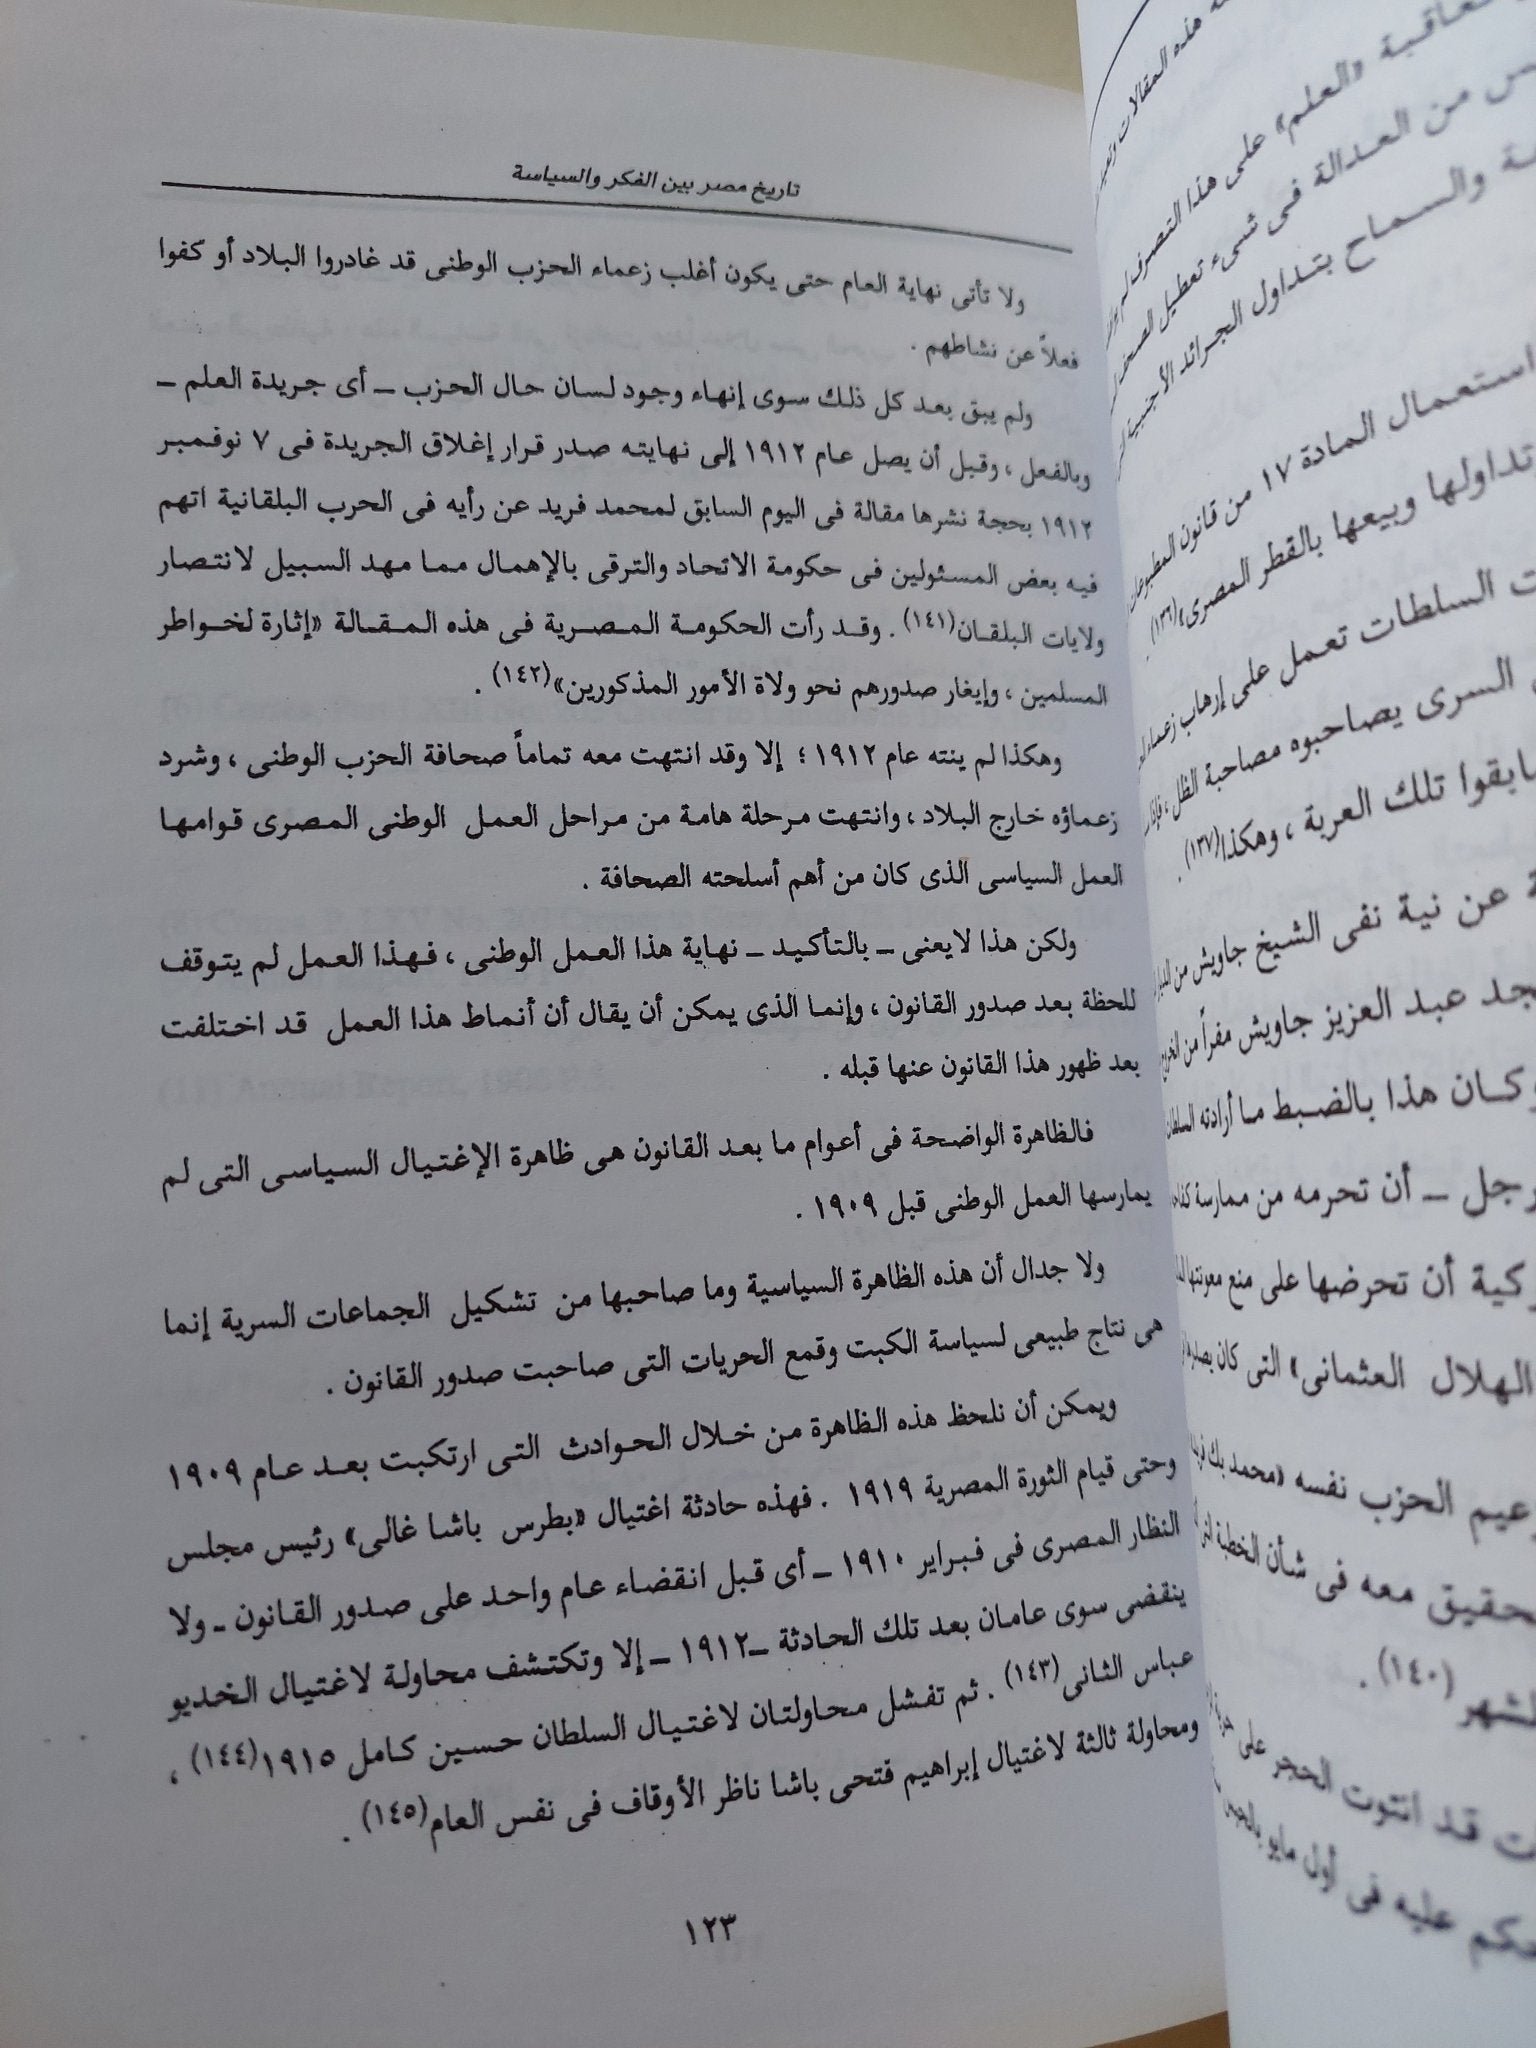 تاريخ مصر بين الفكر والسياسة
ولا تأتى نهاية العام حتى يكون أغلب زعماء الحزب الوطنى قد غادروا البلاد أو كفوا
فعلاً عن نشاطهم .
ولم يبق بعد كل ذلك سوى إنهاء وجود لسان حال الحزب ــ أى جريدة العلم ــ
وبالفعل ، وقبل أن يصل عام ١٩١٢ إلى نهايته صدر قرار إغلاق الجريدة فى ٧ نوفمبر
١٩١٢ بحجة نشرها مقالة فى اليوم السابق لمحمد فريد عن رأيه فى الحرب البلقانية اتهم
فيه بعض المسئولين فى حكومة الاتحاد والترقى بالإهمال مما مهد السبيل لانتصار
ولايات البلقان(١٤١) . وقد رأت الحكومة المصرية فى هذه المقالة «إثارة لخواطر
المسلمين ، وإيغار صدورهم نحو ولاة الأمور المذكورين»(١٤٢) .
وهكذا لم ينته عام ١٩١٢ ؛ إلا وقد انتهت معه تماماً صحافة الحزب الوطنى ، وشرد
زعماؤه خارج البلاد ، وانتهت مرحلة هامة من مراحل العمل الوطنى المصرى قوامها
العمل السياسى الذى كان من أهم أسلحته الصحافة .
ولكن هذا لايعنى ــ بالتأكيد ــ نهاية هذا العمل الوطنى ، فهذا العمل لم يتوقف
للحظة بعد صدور القانون ، وإنما الذى يمكن أن يقال أن أنماط هذا العمل قد اختلفت
بعد ظهور هذا القانون عنها قبله .
فالظاهرة الواضحة فى أعوام ما بعد القانون هى ظاهرة الإغتيال السياسى التى لم
يمارسها العمل الوطنى قبل ١٩٠٩ .
ولا جدال أن هذه الظاهرة السياسية وما صاحبها من تشكيل الجماعات السرية إنما
هى نتاج طبيعى لسياسة الكبت وقمع الحريات التى صاحبت صدور القانون .
ويمكن أن نلحظ هذه الظاهرة من خلال الحوادث التى ارتكبت بعد عام ١٩٠٩
وحتى قيام الثورة المصرية ١٩١٩ . فهذه حادثة اغتيال «بطرس باشا غالى» رئيس مجلس
النظار المصرى فى فبراير ١٩١٠ ــ أى قبل انقضاء عام واحد على صدور القانون ــ ولا
ينقضى سوى عامان بعد تلك الحادثة ــ١٩١٢ ــ إلا وتكتشف محاولة لاغتيال الخديو
عباس الثانى(١٤٣) . ثم تفشل محاولتان لاغتيال السلطان حسين كامل ١٩١٥(١٤٤) ،
ومحاولة ثالثة لاغتيال إبراهيم فتحى باشا ناظر الأوقاف فى نفس العام(١٤٥) .
١٢٣
هذه المقالات
«العلم» على هذا التصرف
من العدالة فى شىء تعطيل
والسماح بتداول الجرائد الأجنبية
استعمال المادة ١٧ من قانون المطبوعات
تداولها وبيعها بالقطر المصرى»(١٣٦) .
السلطات تعمل على إرهاب زعماء
السرى يصاحبوه مصاحبة الظل ،
تلك العربة ، وهكذا(١٣٧) .
عن نية نفى الشيخ جاويش من
عبد العزيز جاويش مفراً من
وكان هذا بالضبط ما أرادته
ــ أن تحرمه من ممارسة
أن تحرضها على منع معونتها
الهلال العثمانى» التى كان
الحزب نفسه «محمد بك
معه فى شأن الخطبة
(١٤٠) .
قد انتوت الحجر على
عليه فى أول مايو